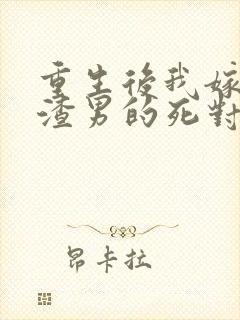 重生後我嫁
渣男的死對
昂卡拉